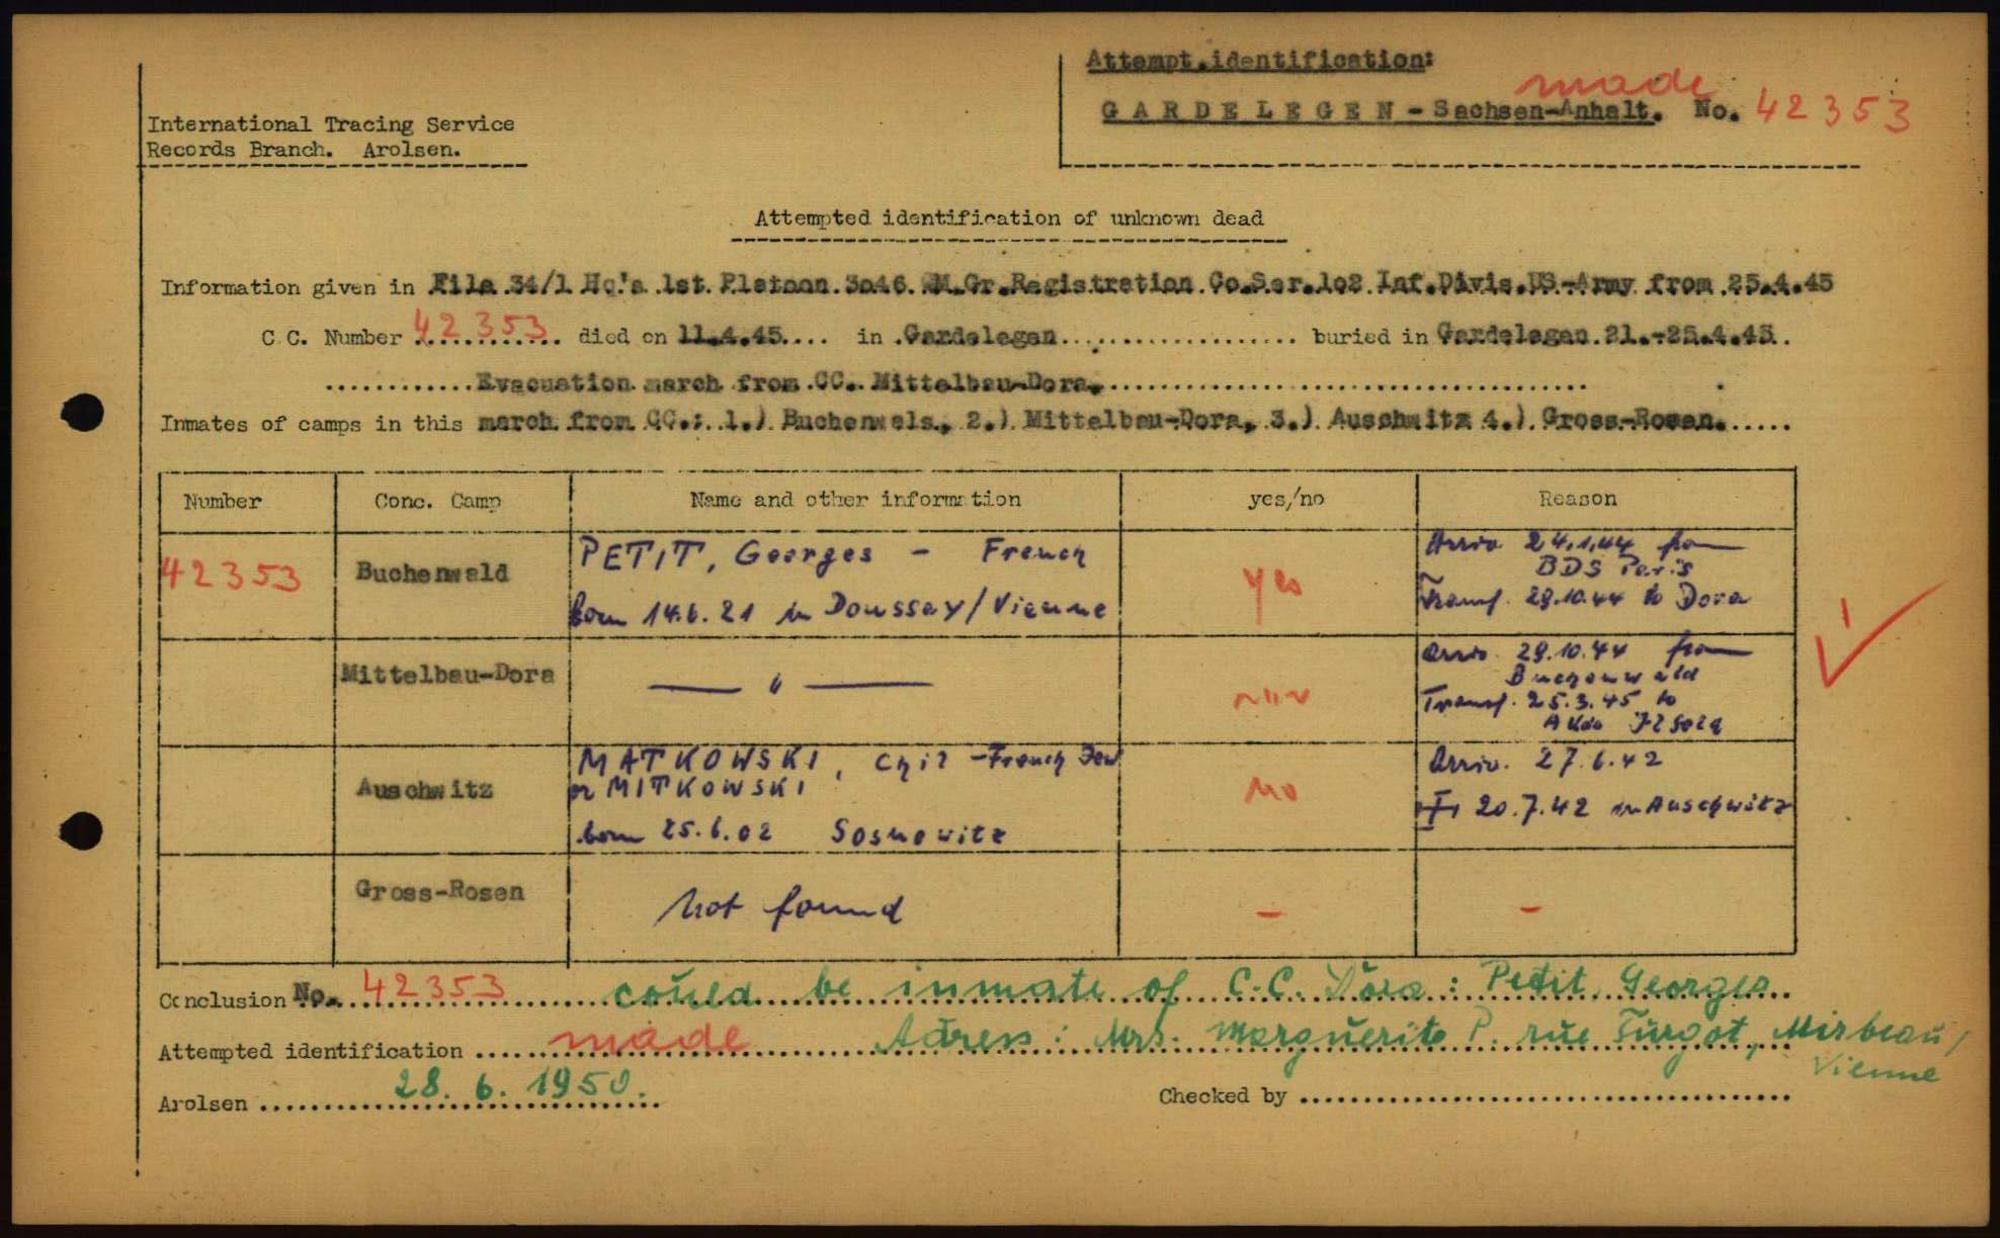 Attempt.identification:
made
International Tracing Service
GARDELEGEN - Sachsen-Anhalt. No. 42353
Records Branch. Arolsen.
Attempted identification of unknown dead
Information given in File 34/1 Hq's 1st. Platoon. 3046. QM.Gr.Registration.Co.Ser.102 Inf.Divis.US-Army from 25.4.45
C.C. Number 42353 died on 11.4.45.... in .Gardelegen.................... buried in Gardelegen.21.-25.4.45.
............Evacuation march from CC. Mittelbau-Dora,......................................
Inmates of camps in this march from CC.: 1.) Buchenwals., 2.) Mittelbau-Dora, 3.) Auschwitz 4.) Gross-Rosen......
Number Conc. Camp Name and other information yes/no Reason
42353 Buchenwald PETIT, Georges - French yes Arriv. 24.1.44 from
BDS Paris
born 14.6.21 in Doussay/Vienne Transf. 29.10.44 to Dora
Mittelbau-Dora — " — Arriv. 29.10.44 from
Buchenwald
Transf. 25.3.45 to
Akdo
Auschwitz MATKOWSKI, Chil - French Jew no Arriv. 27.6.42
or MITKOWSKI
born 25.6.02 Sosnowitz 20.7.42 in Auschwitz
Gross-Rosen not found - -
Conclusion No. 42353 could be inmate of C.C. Dora: Petit, Georges
Attempted identification made Adress: Mrs. Marguerite P. rue Turgot, Mirbeau/
Vienne
Arolsen 28. 6. 1950. Checked by ......................................